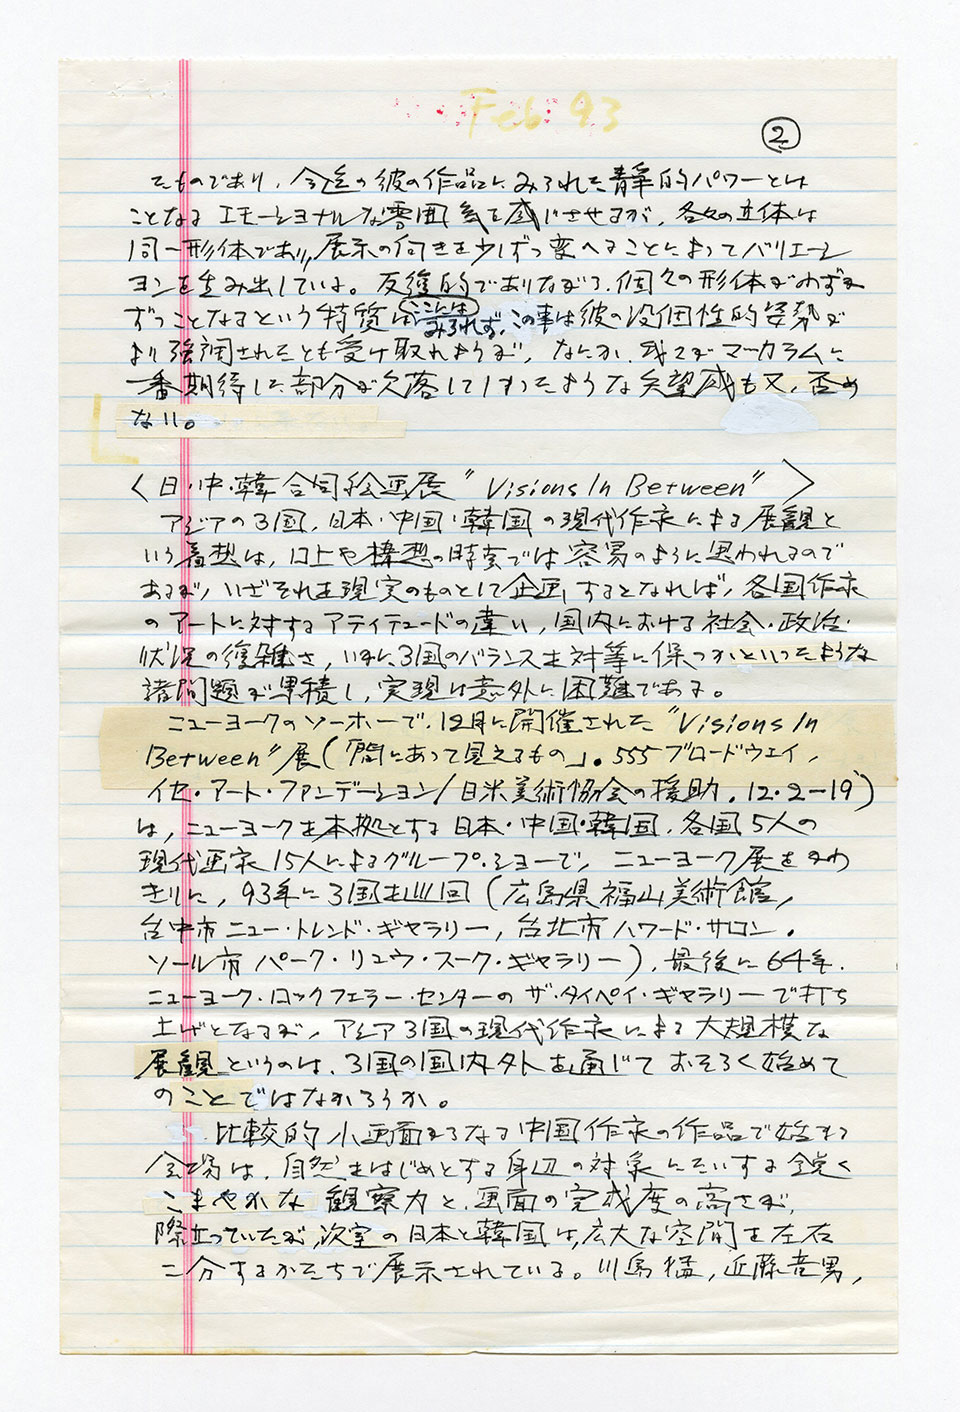 Feb 93
②
たものであり、今迄の彼の作品にみられた静的パワーとは
ことなるエモーショナルな雰囲気を感じさせるが、各々の立体は
同一形体であり、展示の向きを少しずつ変へることによってバリエーシ
ョンを生み出している。反復的でありながら、個々の形体がわずか
ずつことなるという特質はここにはみられず、この事は彼の没個性的姿勢が
より強調されたとも受け取れようが、なにか、我々がマーカラムに
一番期待した部分が欠落してしまったような失望感も又、否め
ない。
〈日・中・韓合同絵画展 "Visions In Between"〉
アジアの3国、日本・中国・韓国の現代作家による展観と
いう着想は、口上や構想の時点では容易のように思われるので
あるが、いざそれを現実のものとして企画するとなれば、各国作家
のアートに対するアティテュードの違い、国内における社会・政治・
状況の複雑さ、いかに3国のバランスを対等に保つかといったような
諸問題が累積し、実現は意外に困難である。
ニューヨークのソーホーで、12月に開催された "Visions In
Between" 展(「間にあって見えるもの」。555ブロードウェイ、
イセ・アート・ファンデーション/日米美術協会の援助。12・2-19)
は、ニューヨークを本拠とする日本・中国・韓国、各国5人の
現代画家15人によるグループ・ショーで、ニューヨーク展をかわ
きりに、93年に3国を巡回(広島県福山美術館、
台中市ニュー・トレンド・ギャラリー、台北市ハワード・サロン、
ソール市パーク・リュウ・スーク・ギャラリー)、最後に64年、
ニューヨーク・ロックフェラー・センターのザ・タイペイ・ギャラリーで打ち
上げとなるが、アジア3国の現代作家による大規模な
展観というのは、3国の国内外を通じておそらく始めて
のことではなかろうか。
比較的小画面からなる中国作家の作品で始まる
会場は、自然をはじめとする身辺の対象にたいする鋭く
こまやかな観察力と、画面の完成度の高さが、
際立っていたが、次室の日本と韓国は、広大な空間を左右
二分するかたちで展示されている。川島猛、近藤竜男、